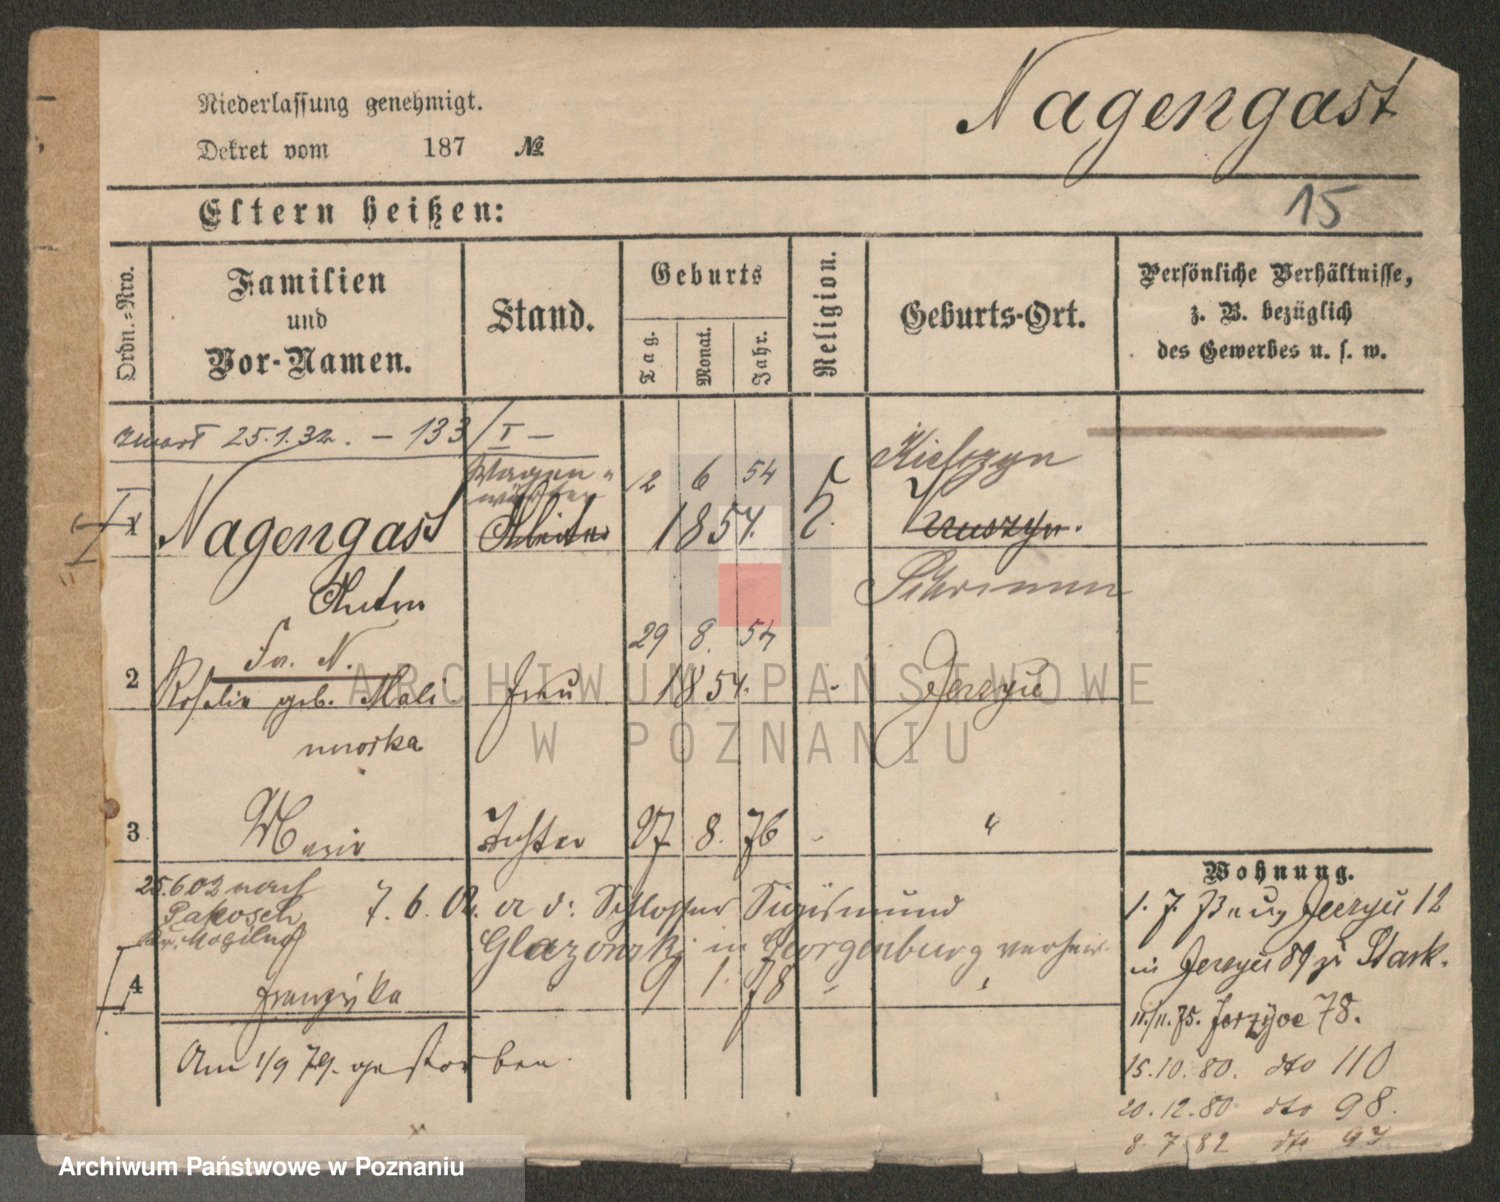 Nagengast
Niederlassung genehmigt.
Dekret vom 187 №
15
Eltern heißen:
Ordn.-Nro.
Familien
und
Vor-Namen.
Stand.
Geburts
Tag.
Monat.
Jahr.
Religion.
Geburts-Ort.
Persönliche Verhältnisse,
z. B. bezüglich
des Gewerbes u. s. w.
zmarł 25.1.32. – 133/I –
1 Nagengast
Wagen-
wärter
Arbeiter
2 6 54
1854.
Kielczyn
Schrimm
Anton
2 Fr. N.
Rosalie geb. Mali
nowska
Frau
29 8. 54
1854.
Jerzyce
3 Marie Tochter 27 8. 76 "
25.6.02 nach
Pakosch
Kr. Mogilno
7. 6. 02. a d. Schlosser Sigismund
Glazonski in Georgenburg verheir.
4 Franziska 9 1. 78 "
Am 1/9 79. gestorben.
Wohnung.
1. 7. 73 aus Jerzyce 12
in Jerzyce 89 zu Stark.
11/11. 75. Jerzyce 78.
15.10.80. dto 110
20.12.80 dto 98.
8. 7 82 dto 97.
ARCHIWUM PAŃSTWOWE
W POZNANIU
Archiwum Państwowe w Poznaniu